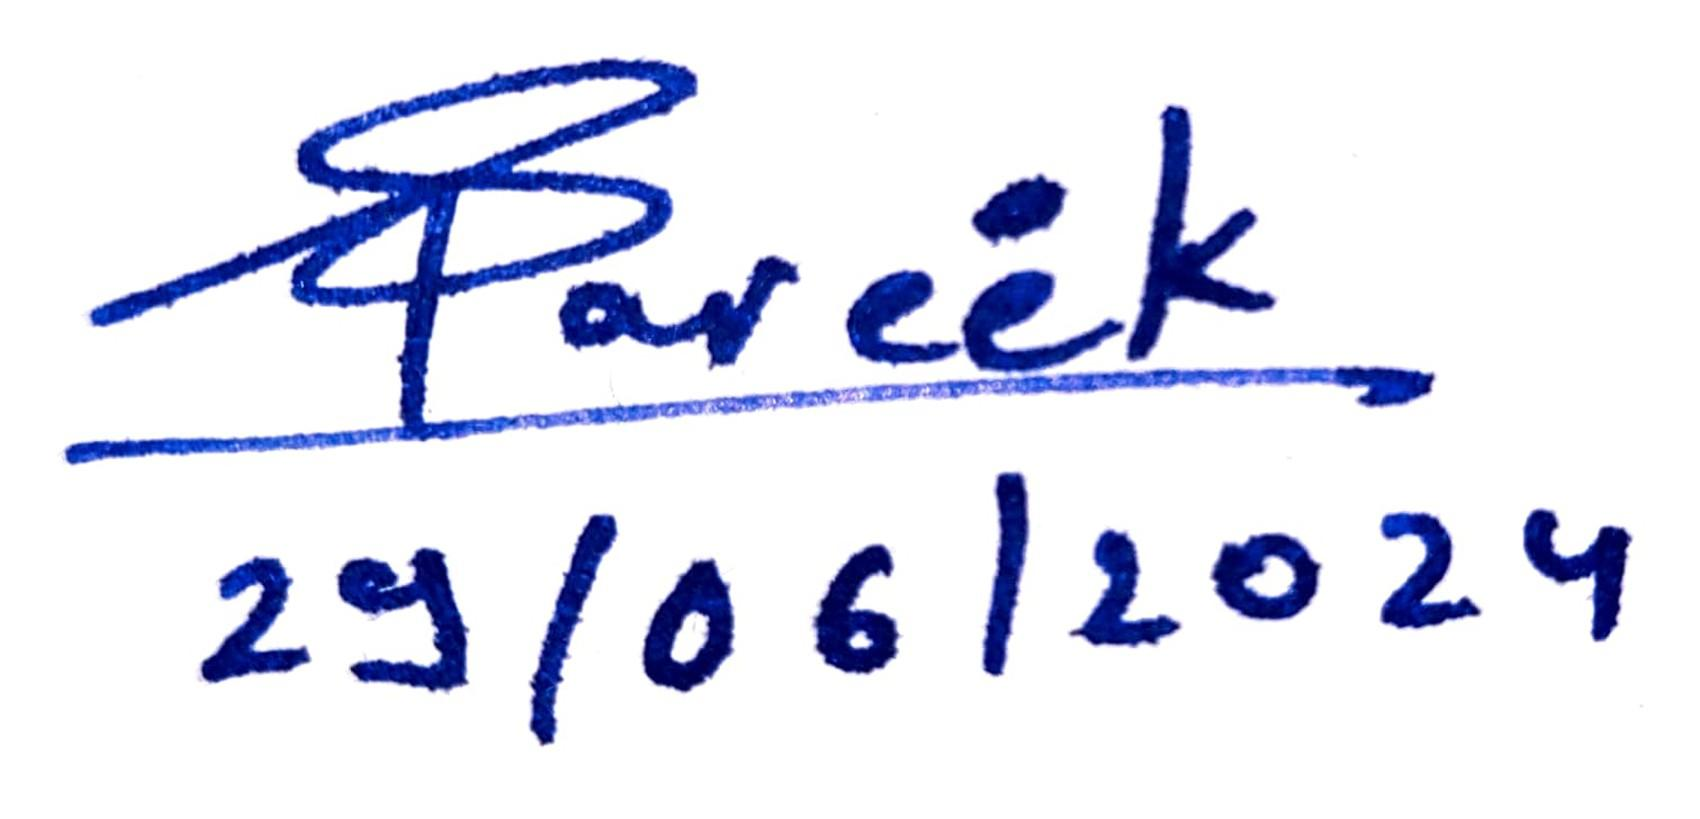 Pareek
29/06/2024